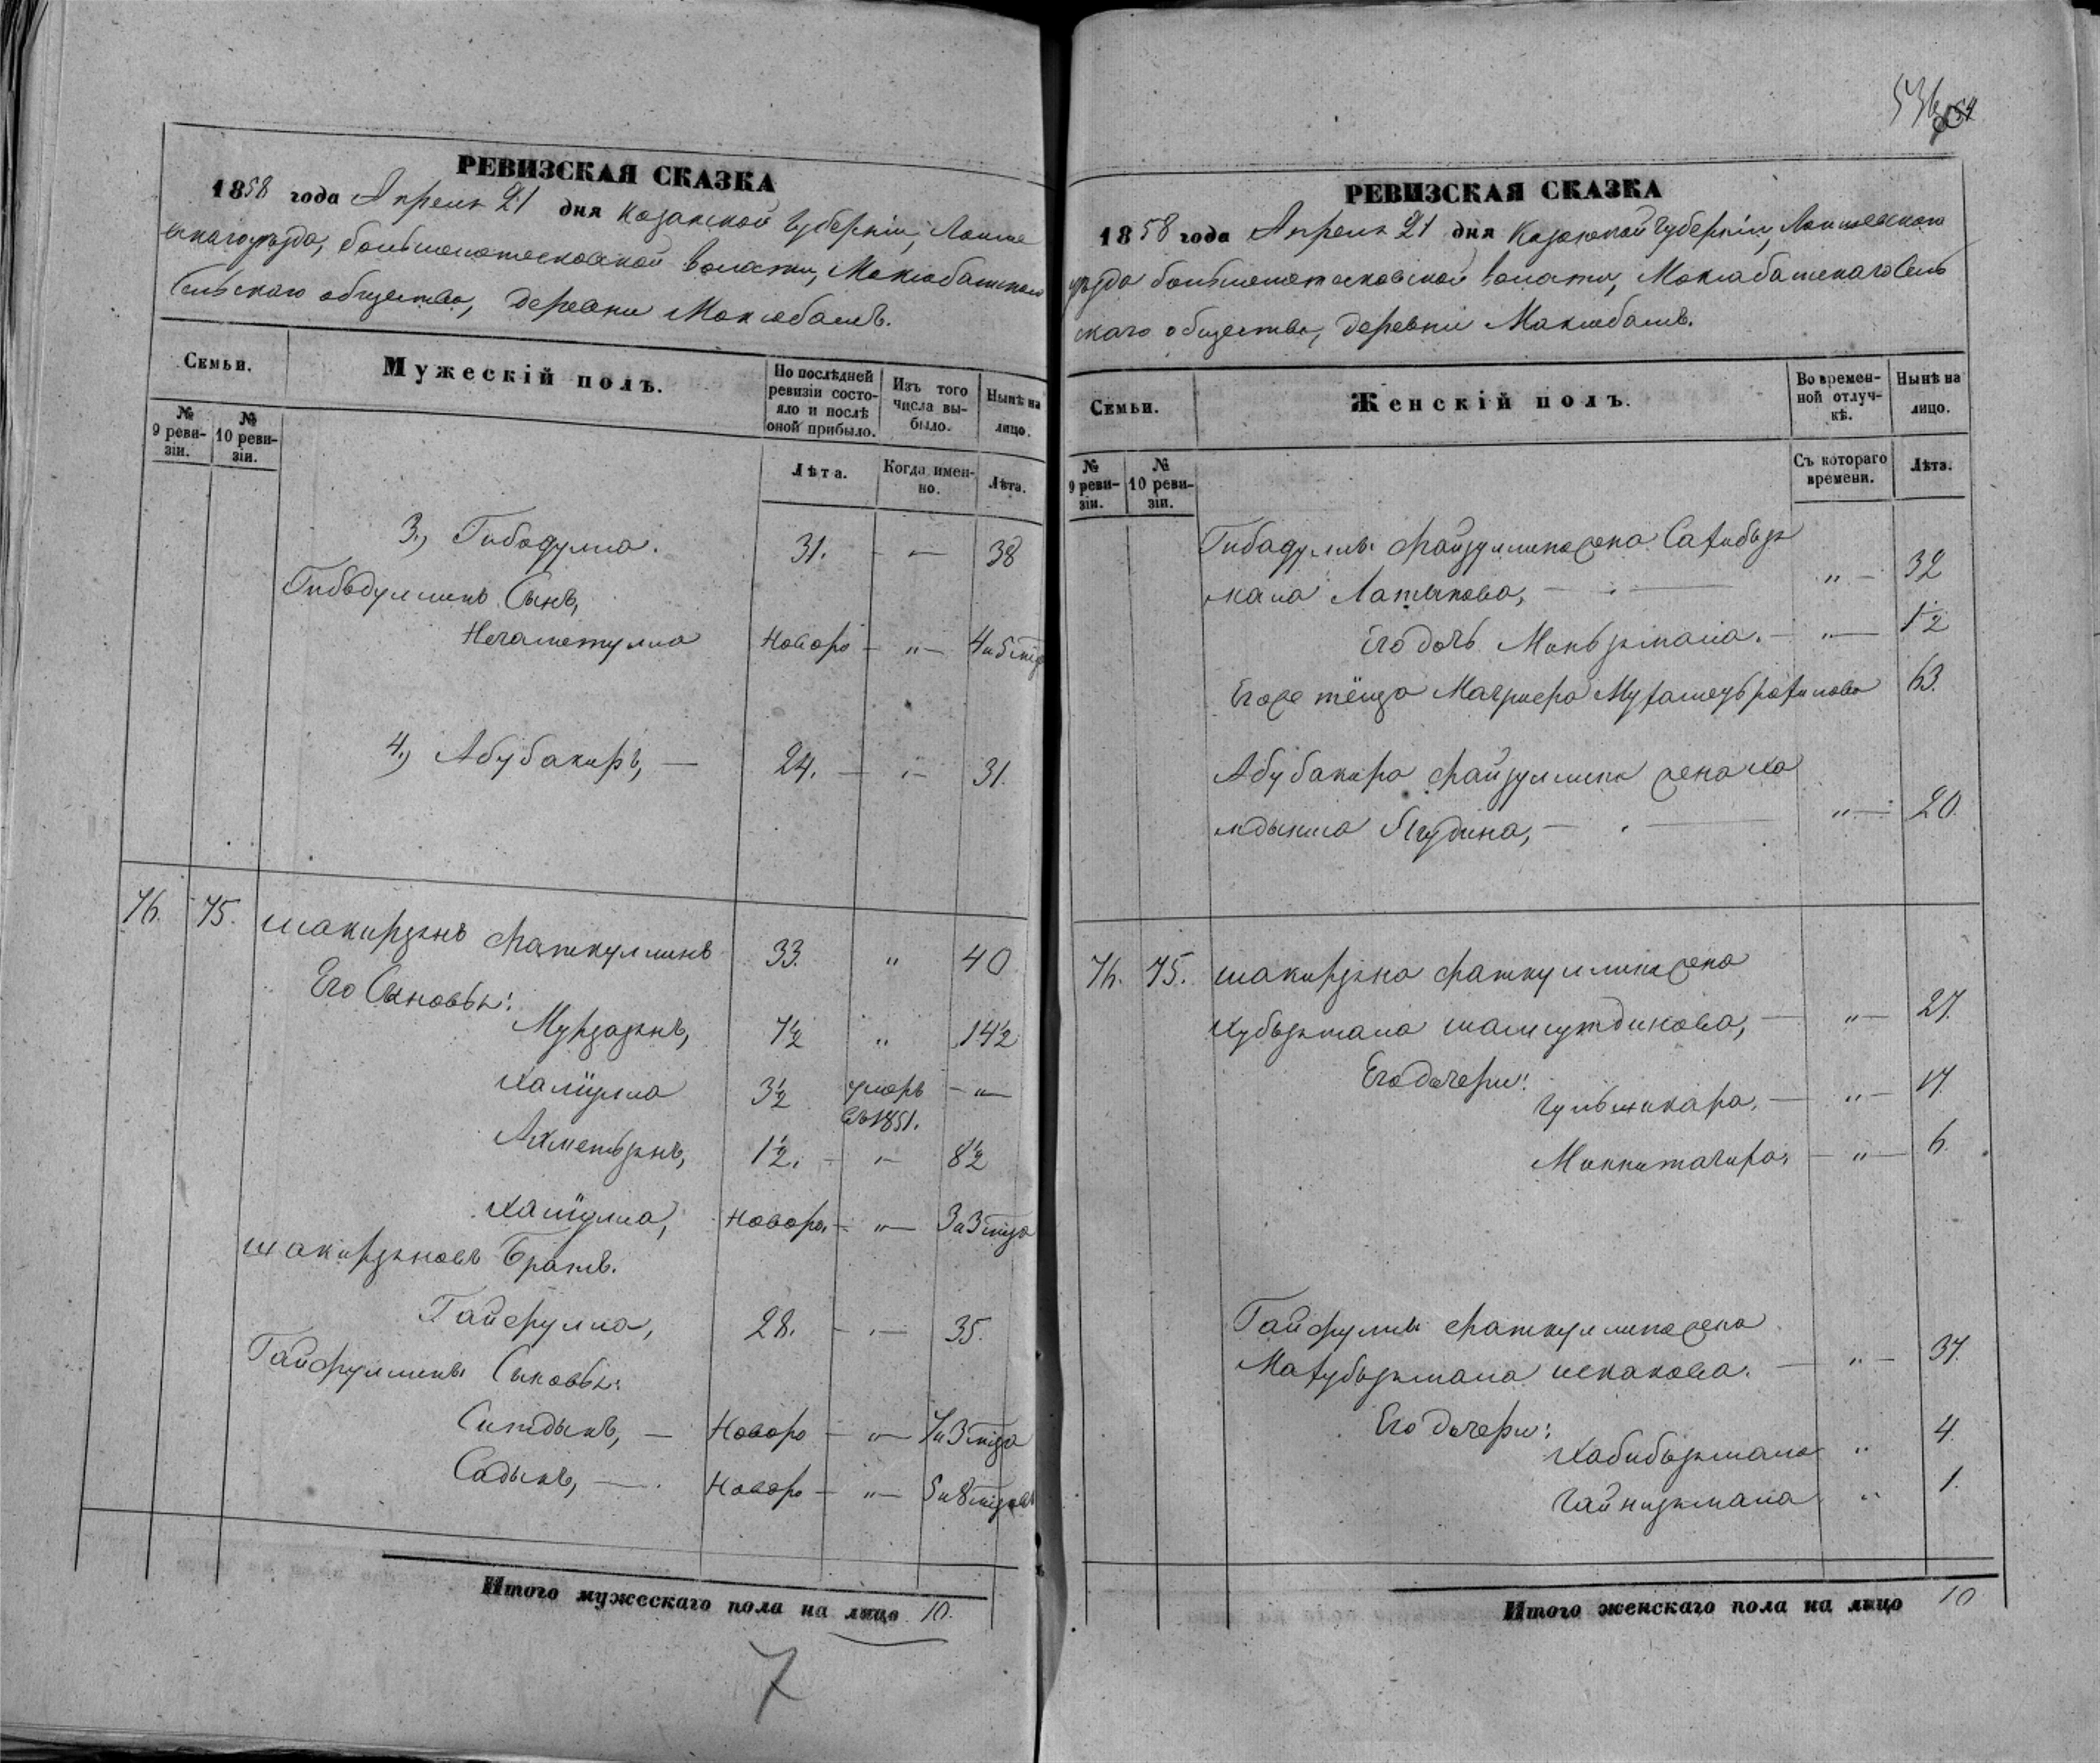 РЕВИЗСКАЯ СКАЗКА
1858 года Апреля 21 дня Казанской Губерніи, Лаише
вскаго уѣзда, большеметесковской волости, Маклабашскаго
Сельскаго общества, деревни Маклабашъ.
Семьи.
Мужескій полъ.
По послѣдней ревизіи состояло и послѣ оной прибыло.
Изъ того числа выбыло.
Нынѣ на лицо.
№ 9 ревизіи.
№ 10 ревизіи.
Лѣта.
Когда именно.
Лѣта.
3., Гибадулла. 31. - "- 38
Гибадуллинъ Сынъ,
Негаметулла Новоро - "- 4 и 5 мѣс
4., Абубакиръ, — 24. - "- 31.
76. 75. Шакирзянъ Фаткуллинъ 33. " 40
Его Сыновья:
Мурзазянъ, 7½ " 14½
Халиулла 3½ умеръ въ 1851. - "-
Ахметзянъ, 1½. - "- 8½
Халиулла, Новоро. - "- 3 и 3 мѣс
Шакирзяновъ Братъ.
Гайфулла, 28. - "- 35.
Гайфуллины Сыновья:
Ситдыкъ, — Новоро - "- 7 и 3 мѣс
Садыкъ, — Новоро - "- 5 и 8 мѣс
Итого мужескаго пола на лицо 10.
7
536
РЕВИЗСКАЯ СКАЗКА
1858 года Апреля 21 дня Казанской Губерніи, Лаишевскаго
уѣзда большеметесковской волости, Маклабашскаго Сель
скаго общества, деревни Маклабашъ.
Семьи.
Женскій полъ.
Во временной отлучкѣ.
Нынѣ на лицо.
№ 9 ревизіи.
№ 10 ревизіи.
Съ котораго времени.
Лѣта.
Гибадуллы Файзуллина жена Сахибзя
мала Латыпова, — "- 32
Его дочь Минзямала. - "- 12
Его же тёща 63.
Абубакира Файзуллина жена Ха
Ягудина, — "- 20.
76. 75. Шакирзяна Фаткуллина жена
Хубзямала Шамсутдинова, — "- 27.
Его дочери:
Гульжигара, — "- 17.
"- 6.
Гайфуллы Фаткуллина жена
Махубзямала Исхакова. — "- 37.
Его дочери:
Хабибзямала " 4.
Гайнизямала " 1.
Итого женскаго пола на лицо 10